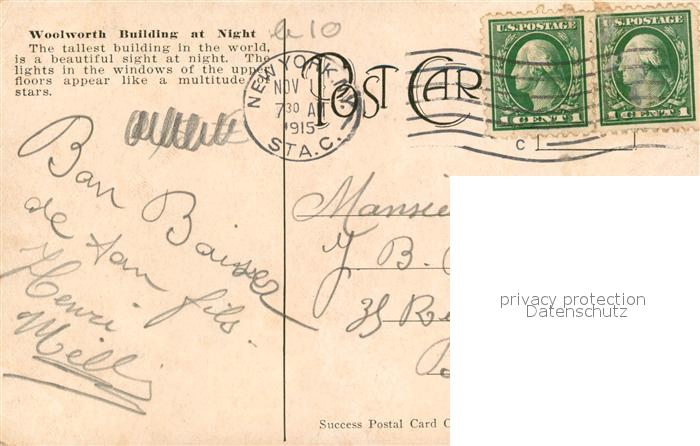 Woolworth Building at Night
The tallest building in the world,
is a beautiful sight at night. The
lights in the windows of the upper
floors appear like a multitude
stars.
a 10
NEW YORK, N.Y.
NOV
7 30 A
1915
STA. C.
POST CAR
U.S. POSTAGE
1 CENT 1
U.S. POSTAGE
1 CENT 1
C
Bon Baiser
de ton fils.
Henri
Mill
Monsie
J. B.
35 R
privacy protection
Datenschutz
Success Postal Card C